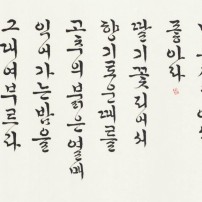 좋아라
딸기꽃 피어서
향기로운 때를
고추의 붉은 열매
익어가는 밤을
그대여 부르라